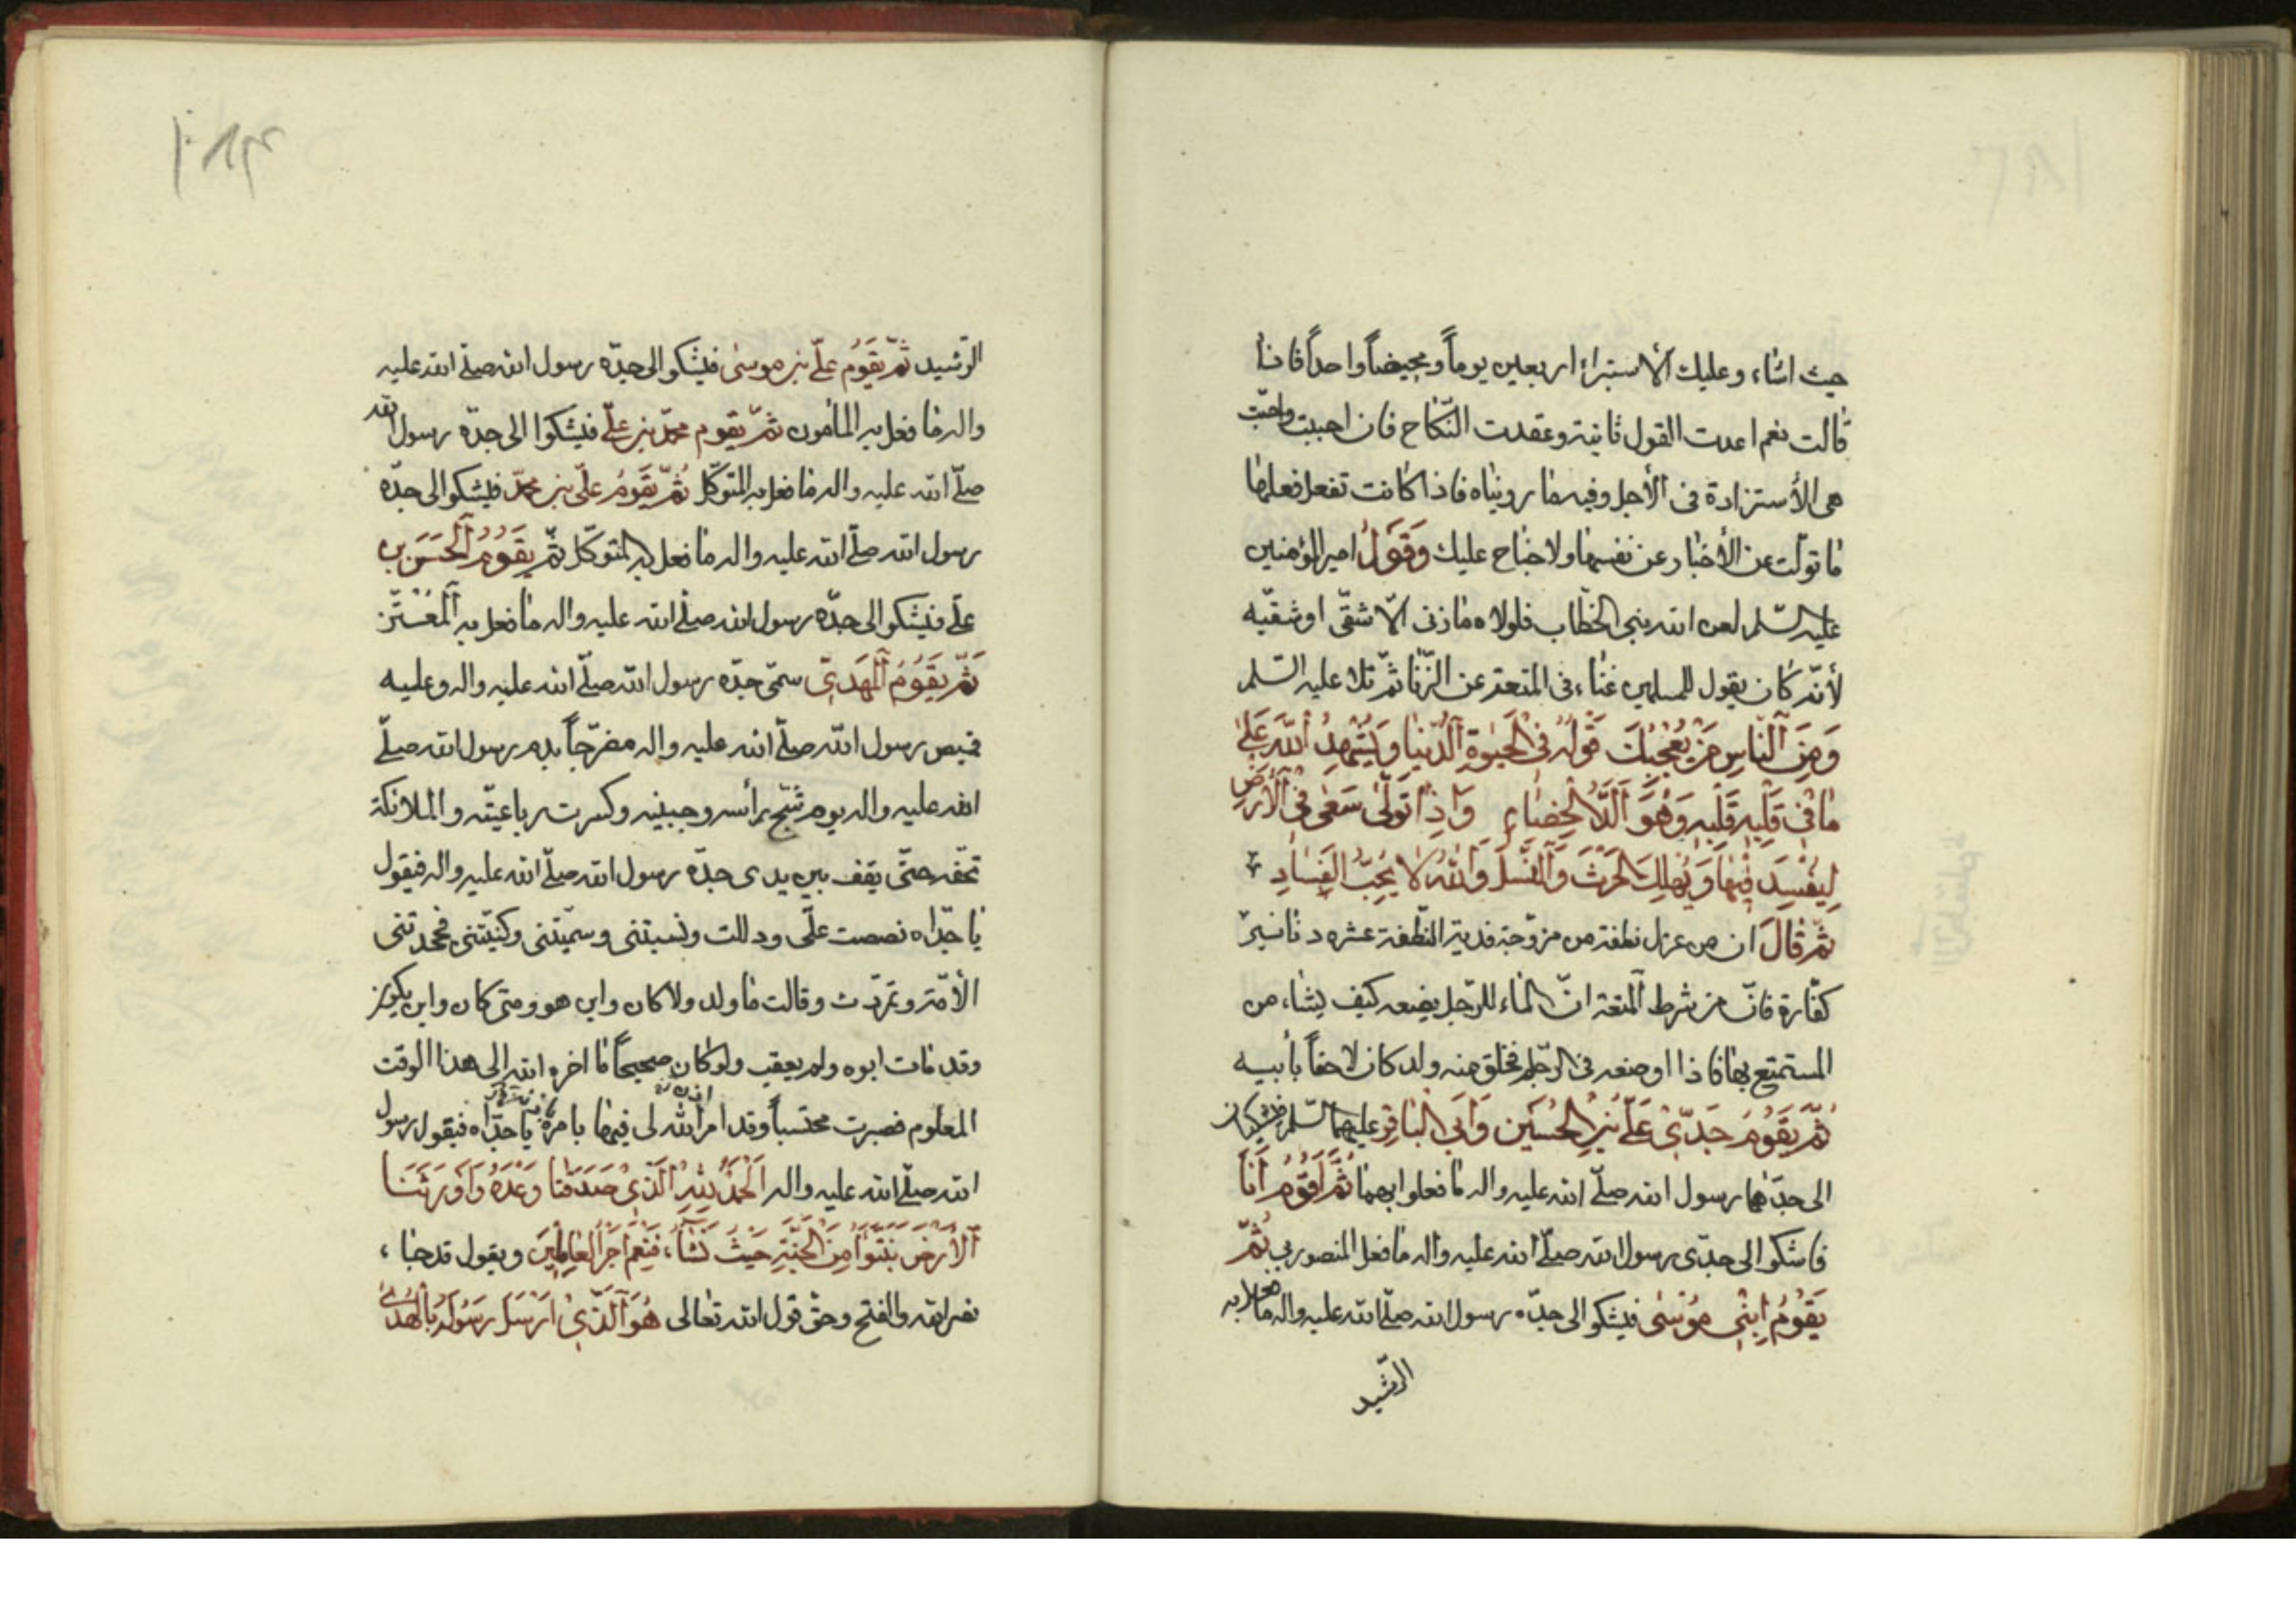 حيث اشاء وعليك الأستبراء اربعين يوماً ومحيضاً واحداً فاذا
قالت نعم اعدت القول ثانية وعقدت النّكاح فان احببت واحبّت
هى الأستزادة فى الأجل وفيه ما رويناه فاذا كانت تفعل فعلها
ما تولّت عن الأخبار عن نفسها ولا جناح عليك وَقَوْلُ امير المؤمنين
عليه السّلم لعن الله بنى الخطّاب فلولاه ما زنى الّا شقّى او شقيّه
لأنّه كان يقول للمسلمين غناء فى المتعة عن الزّنا ثمّ تلا عليه السّلم
وَمِنَ ٱلنّاسِ مَنْ يُعْجِبُكَ قَوْلُهُ فِى الْحَيٰوةِ ٱلدُّنْيا وَيُشْهِدُ اللّٰهَ عَلىٰ
مٰا فِى قَلْبِهِ قَلْبِهِ وَهُوَ اَلَدُّ الْخِصٰامِ وَاِذٰا تَوَلّىٰ سَعٰى فِى ٱلْأَرْضِ
لِيُفْسِدَ فِيْهٰا وَيُهْلِكَ الْحَرْثَ وَٱلنَّسْلَ وَاللّٰهُ لٰا يُحِبُّ الْفَسٰادِ
ثُمَّ قٰالَ ان من عزل نطفة من مزوّجة فدية النّطفة عشره دنانير
كفّارة فانّ من شرط ٱلمتعة انّ الماء للرّجل يضعه كيف يشاء من
المستمتع بها فاذا اوضعه فى الرّحم فخلق منه ولد كان لاحقاً بأبيه
ثُمَّ يَقُوْمُ جَدِّىْ عَلَىّ بْنِ الْحُسَيْنِ وَاَبِى الْبٰاقِرِ عليهما السّلم فيشكوان
الى جدّهما رسول الله صلّى الله عليه واله ما فعلوا بهما ثُمَّ اَقُوْمُ اَنَا
فاشكوا الى جدّى رسول الله صلّى الله عليه واله ما فعل المنصور بى ثُمَّ
يَقُوْمُ اِبْنِى مُوْسٰى فيشكو الى جدّه رسول الله صلّى الله عليه واله ما فعل به
الرّشيد
الرّشيد ثُمَّ يَقُوْمُ علىّ بن موسىٰ فيشكو الى جدّه رسول الله صلّى الله عليه
واله ما فعل به المأمون ثمّ يقوم محمّد بن علىّ فيشكوا الى جدّه رسول الله
صلّى الله عليه واله ما فعل به المتوكّل ثُمَّ يَقُوْمُ علىّ بن محمّد فيشكو الى جدّه
رسول الله صلّى الله عليه واله ما فعل به المتوكّل ثمّ يَقُوْمُ ٱلْحَسَنُ بن
علىّ فيشكو الى جدّه رسول الله صلّى الله عليه واله ما فعل به ٱلْمُعْتَزّ
ثُمَّ يَقُوْمُ ٱلْمَهْدِىّ سمّى جدّه رسول الله صلّى الله عليه واله وعليه
قميص رسول الله صلّى الله عليه واله مضرّجاً بدم رسول الله صلّى
الله عليه واله يوم شجّ رأسه وجبينه وكسرت رباعيّته والملائكة
تحفّه حتّى يقف بين يدى جدّه رسول الله صلّى الله عليه واله فيقول
يا جدّاه نصصت علىّ ودللت ونسبتنى وسمّيتنى وكنّيتنى فجحدتنى
الأمّة وتمرّدت وقالت ما ولد ولا كان واين هو ومتى كان واين يكون
وقد مات ابوه ولم يعقب ولو كان صحيحاً ما اخره الله الى هذا الوقت
المعلوم فصبرت محتسباً وقد امر الله لى فيها بامره يا جدّاه فيقول رسول
الله صلّى الله عليه واله اَلْحَمْدُ لِلّٰهِ الَّذِىْ صَدَقَنا وَعْدَهُ وَاَوْرَثَنا
ٱلْأَرْضَ نَتَبَوَّأُ مِنَ الْجَنَّةِ حَيْثُ نَشٰآءُ فَنِعْمَ اَجْرُ الْعٰامِلِيْنَ ويقول قد جاء
نصر الله والفتح وحقّ قول الله تعالى هُوَ ٱلَّذِىْ اَرْسَلَ رَسُوْلَهُ بِالْهُدىٰ